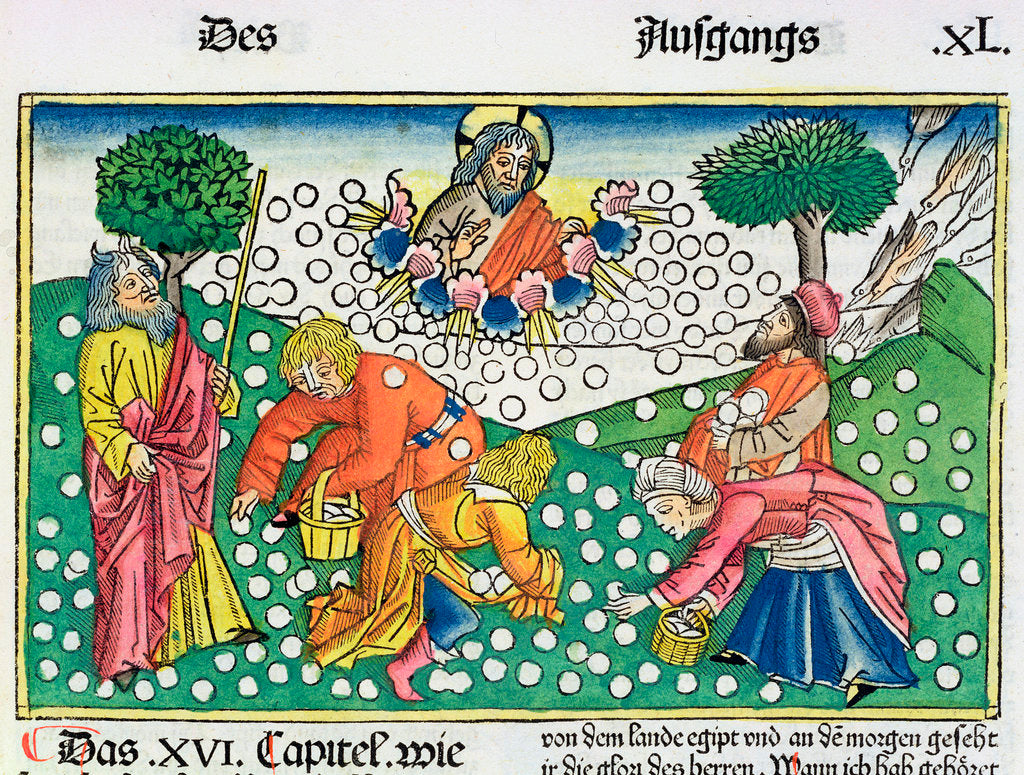 Des
Ausgangs
.XL.
Das .XVI. Capitel. wie
von dem lande egipt vnd an dē morgen geseht
ir die glori des herren. Wann ich hab gehöret